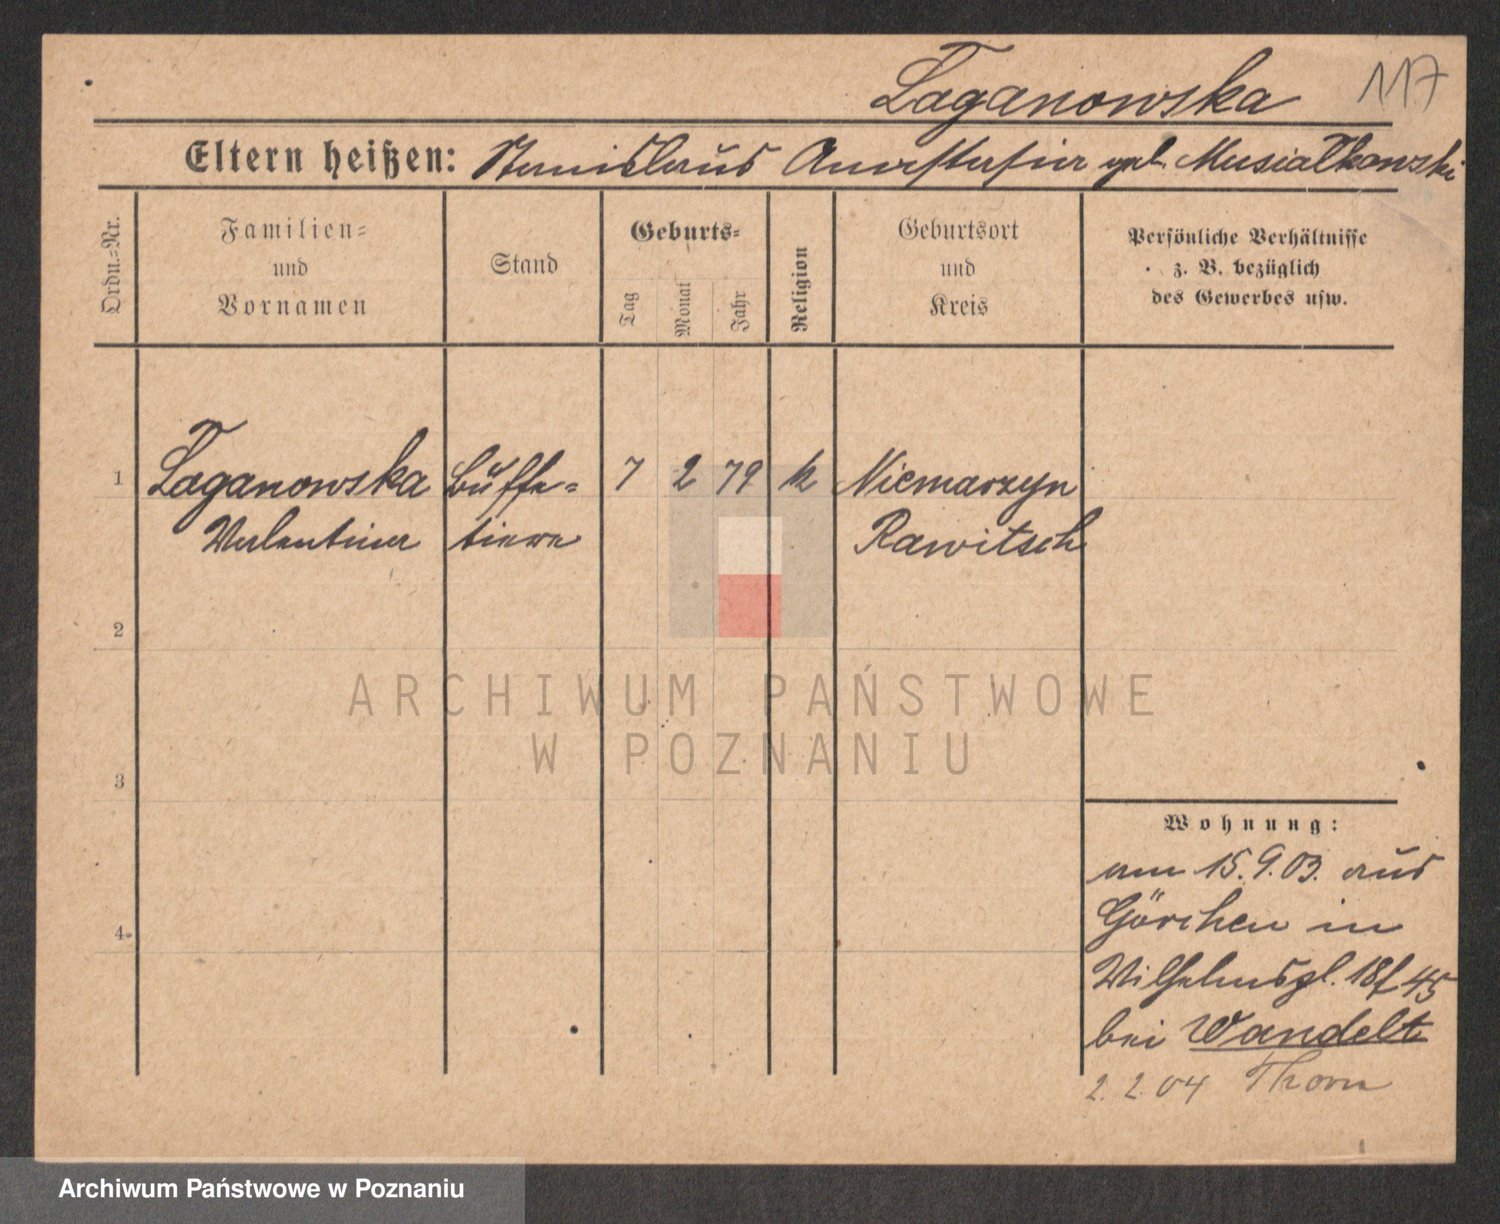 Laganowska
117
Eltern heißen: Stanislaus Anastasia geb. Musialkowski
Ordn.-Nr.
Familien-
und
Vornamen
Stand
Geburts-
Tag
Monat
Jahr
Religion
Geburtsort
und
Kreis
Persönliche Verhältnisse
z. B. bezüglich
des Gewerbes usw.
1 Laganowska Buffe- 7 2 79 k Niemarzyn
Valentina tiere Rawitsch
2
3
4
Wohnung:
am 15.9.03. aus
Görchen in
Wilhelmspl. 18
bei Wandelt
2.2.04 Thorn
ARCHIWUM PAŃSTWOWE
W POZNANIU
Archiwum Państwowe w Poznaniu